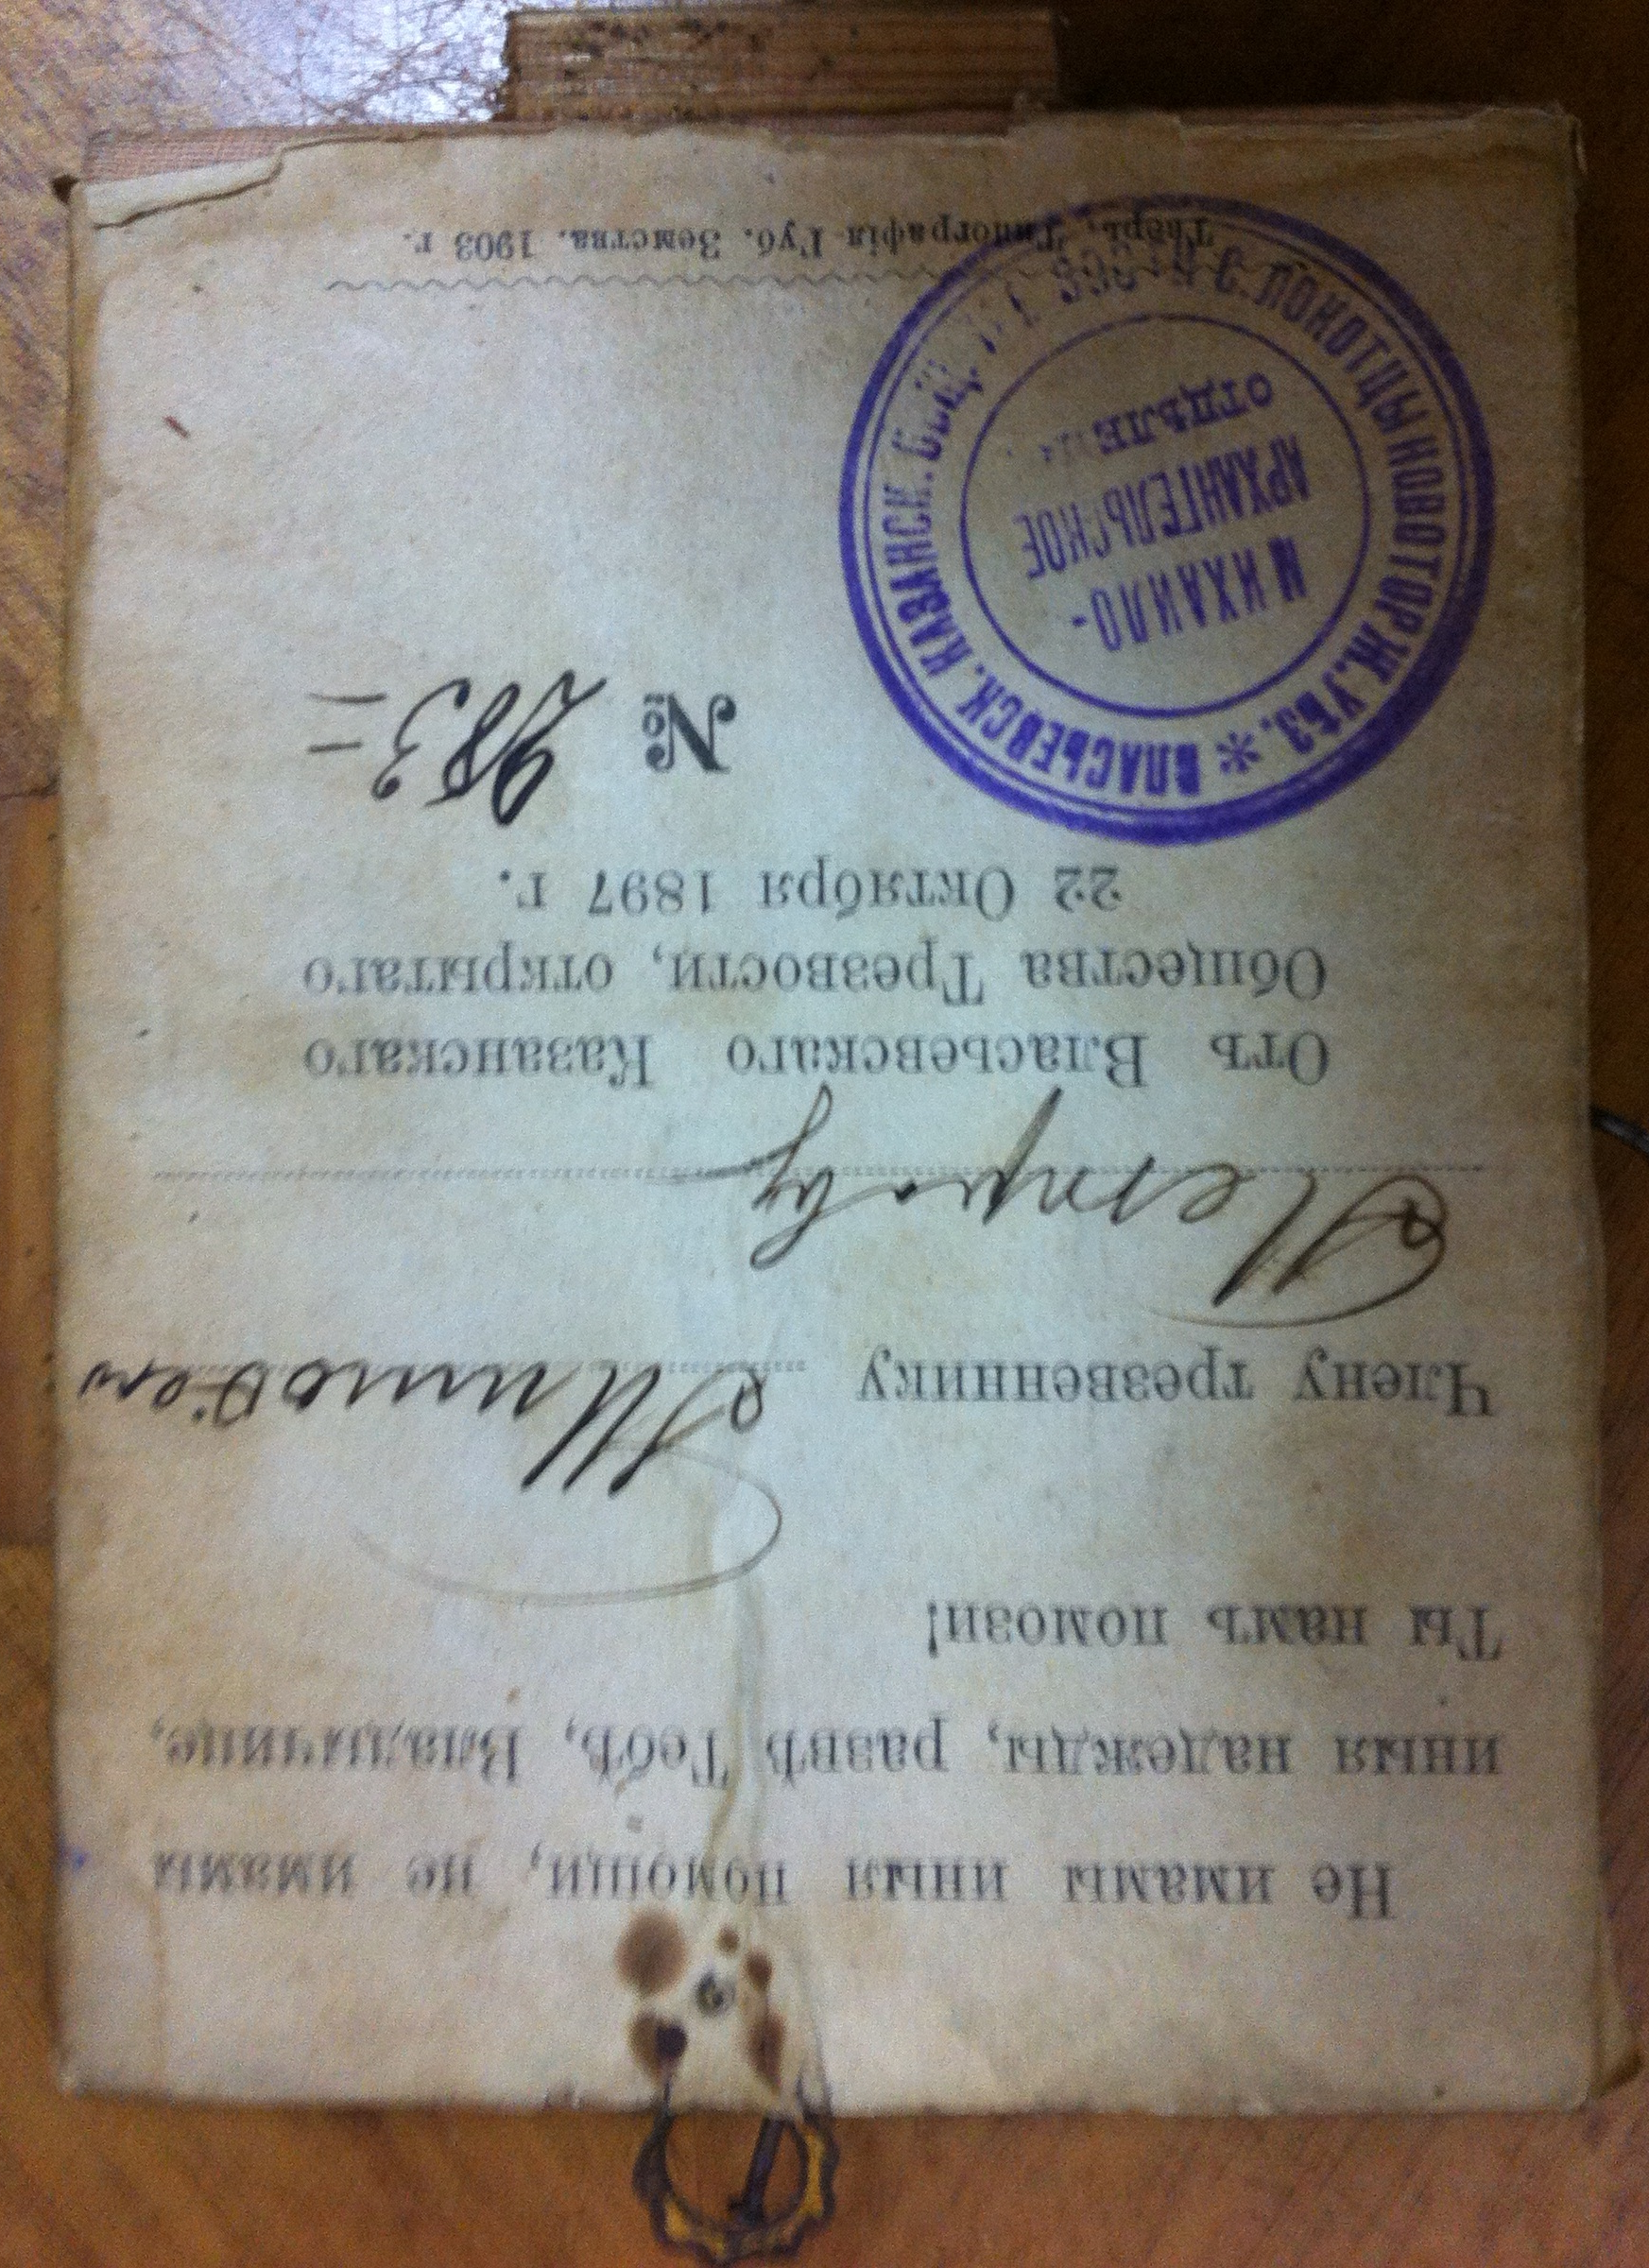 Не имамы иныя помощи, не имамы
иныя надежды, развѣ Тебѣ, Владычице,
Ты намъ помози!
Члену трезвеннику
Петрову
Отъ Власьевскаго Казанскаго
Общества Трезвости, открытаго
22 Октября 1897 г.
№ 983
ВЛАСЬЕВСК. КАЗАНСК. НОВОТОРЖ. УѢЗ. *
МИХАИЛО-
АРХАНГЕЛЬСКОЕ
Тверь, Типографія Губ. Земства. 1903 г.